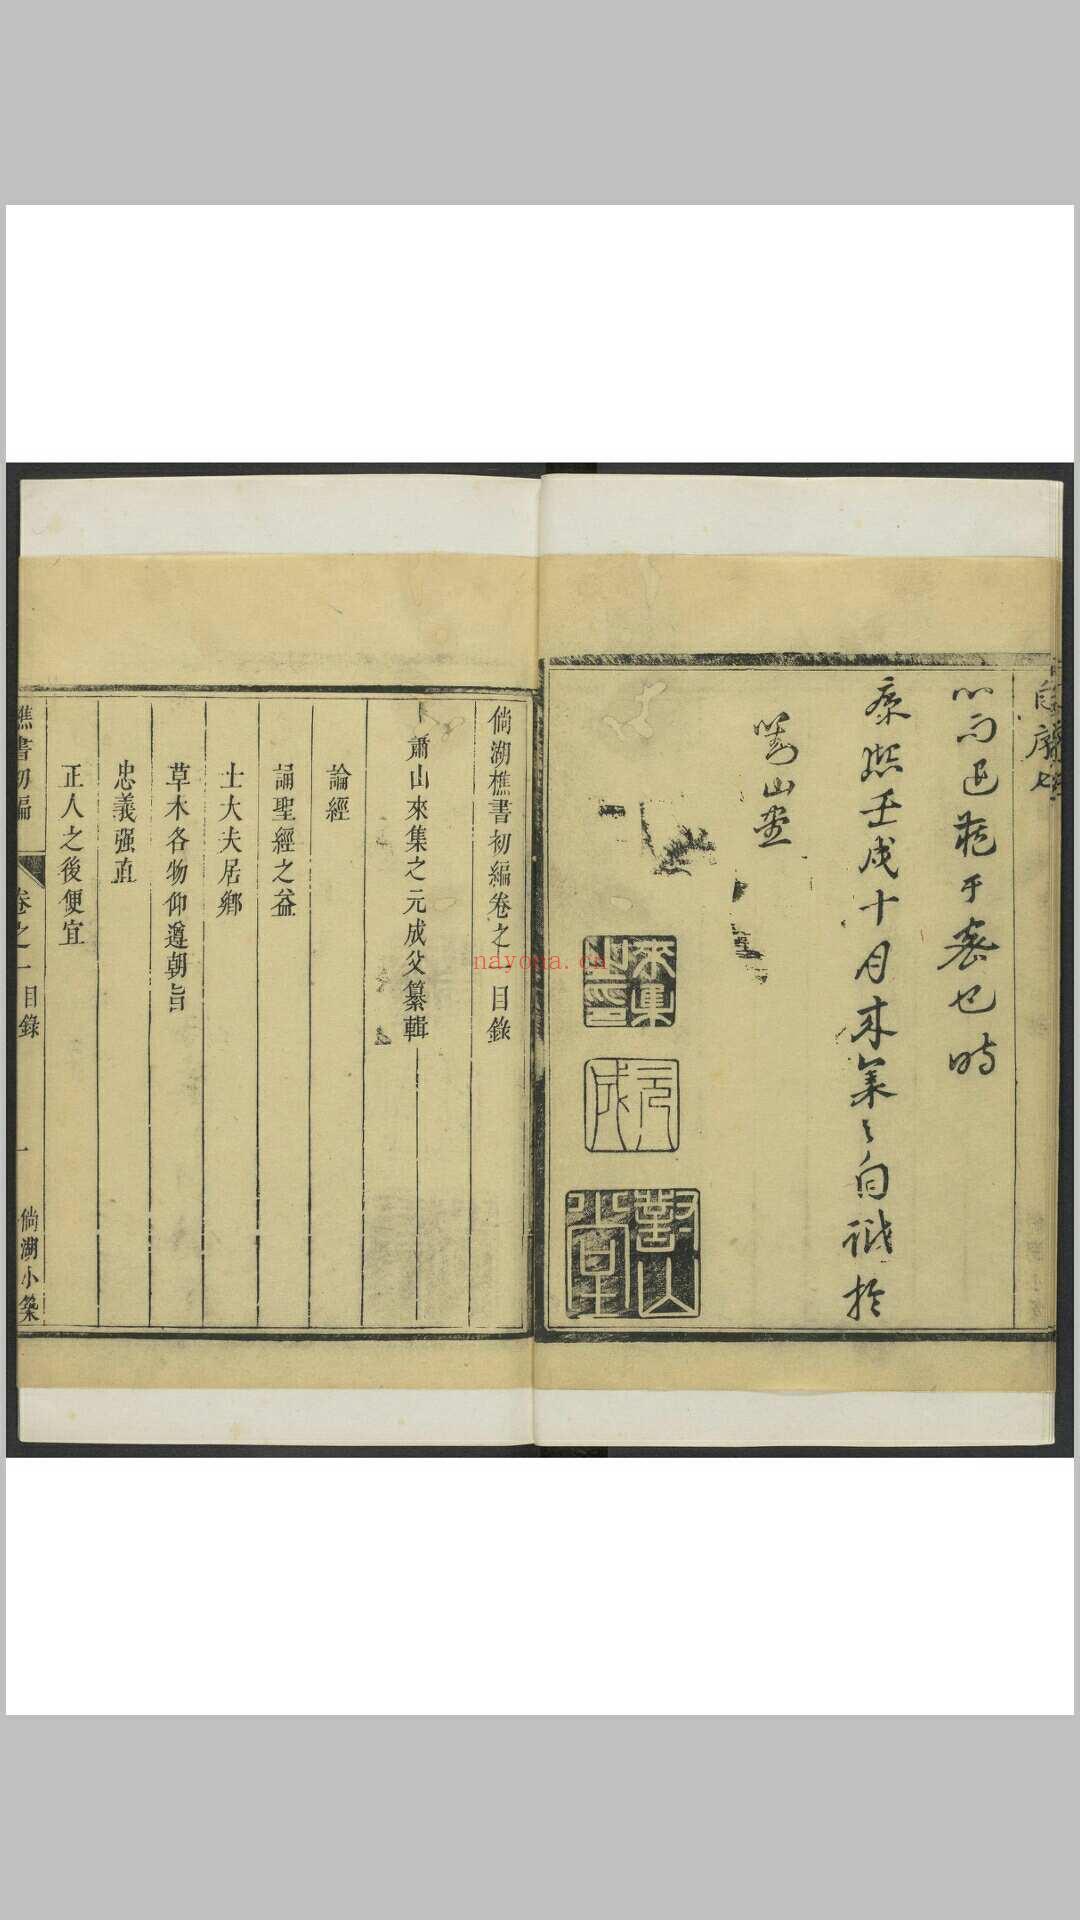 自序
以而已耄于衰也時
康熙壬戌十月來集之自識於
對山堂
來集之印
元成
對山堂
倘湖樵書初編卷之一目錄
蕭山來集之元成父纂輯
論經
誦聖經之益
士大夫居鄉
草木各物仰遵朝旨
忠義强直
正人之後便宜
樵書初編 卷之一目錄 一 倘湖小築
nayona.cn